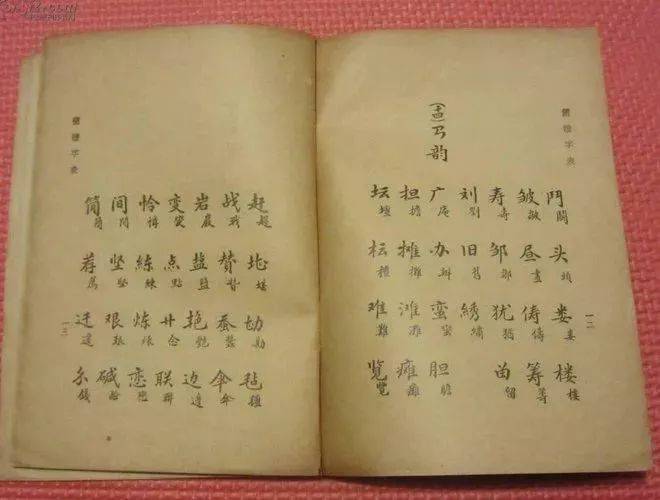 簡體字表
鬥鬭 头頭 娄婁 楼樓
皱皺 昼晝 俦儔 筹籌
寿壽 邹鄒 犹猶 畄留
刘劉 旧舊 綉繡
(十四)ㄢ韵
广庵 办辦 蛮蠻 胆膽
担擔 摊攤 滩灘 瘫癱
坛壇 枟檀 难難 览覽
一二
簡體字表
赶趕 毡氈
战戰 賛贊 蚕蠶 伞傘
岩巖 盐鹽 艳艷 边邊
变變 点點 廿念 联聯
怜憐 练練 炼煉 恋戀
间間 坚堅 艰艱 碱鹼
简簡 荐薦 迁遷 錢
一三